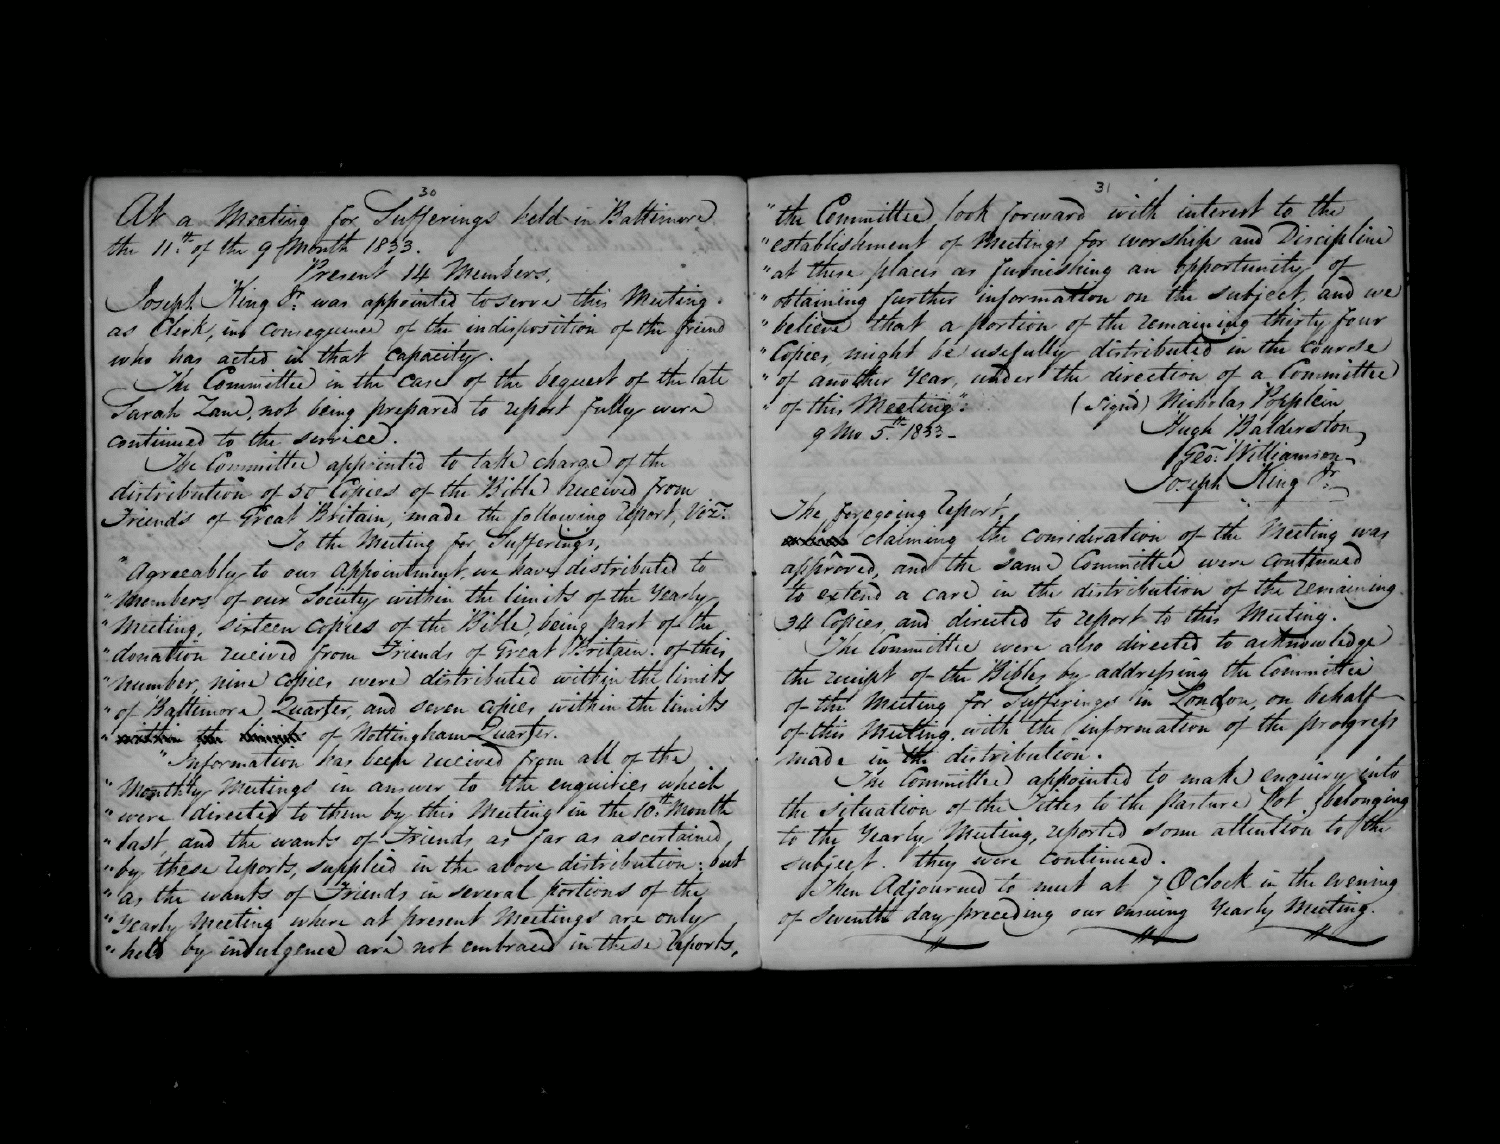 30
At a Meeting for Sufferings held in Baltimore
the 11.th of the 9 Month 1833.
Present 14 Members,
Joseph King Jr. was appointed to serve this Meeting
as Clerk, in consequence of the indisposition of the friend
who has acted in that capacity.
The Committee in the case of the bequest of the late
Sarah Zane, not being prepared to report fully were
continued to the service.
The Committee appointed to take charge of the
distribution of 50 Copies of the Bible received from
Friends of Great Britain, made the following report, Vizt.
To the Meeting for Sufferings,
"Agreeably to our Appointment, we have distributed to
"Members of our Society within the limits of the Yearly
"Meeting, sixteen copies of the Bible, being part of the
"donation received from Friends of Great Britain. of this
"number, nine copies were distributed within the limits
"of Baltimore Quarter, and seven copies within the limits
"within the limits of Nottingham Quarter.
"Information has been received from all of the
"Monthly Meetings in answer to the enquiries which
"were directed to them by this Meeting in the 10.th Month
"last, and the wants of Friends as far as ascertained,
"by these reports, supplied in the above distribution; but
"as the wants of Friends in several portions of the
"Yearly Meeting where at present Meetings are only
"held by indulgence are not embraced in these Reports,
31
"the Committee look forward with interest to the
"establishment of Meetings for worship and Discipline
"at these places as furnishing an opportunity of
"obtaining further information on the subject, and we
"believe that a portion of the remaining thirty four
"Copies, might be usefully distributed in the Course
"of another Year, under the direction of a Committee
"of this Meeting". (Signd) Nicholas Popplein
9 Mo 5.th 1833 - Hugh Balderston,
Geo. Williamson
Joseph King Jr.
The foregoing Report,
claiming the consideration of the Meeting was
approved, and the same Committee were continued
to extend a care in the distribution of the remaining
34 Copies, and directed to report to this Meeting.
The Committee were also directed to acknowledge
the receipt of the Bibles by addressing the Committee
of the Meeting for Sufferings in London, on behalf
of this Meeting, with the information of the progress
made in the distribution.
The Committee appointed to make enquiry into
the situation of the Titles to the Pasture Lot, belonging
to the Yearly Meeting, reported some attention to the
subject. they were continued.
Then Adjourned to meet at 7 OClock in the evening
of Seventh day preceding our ensuing Yearly Meeting.